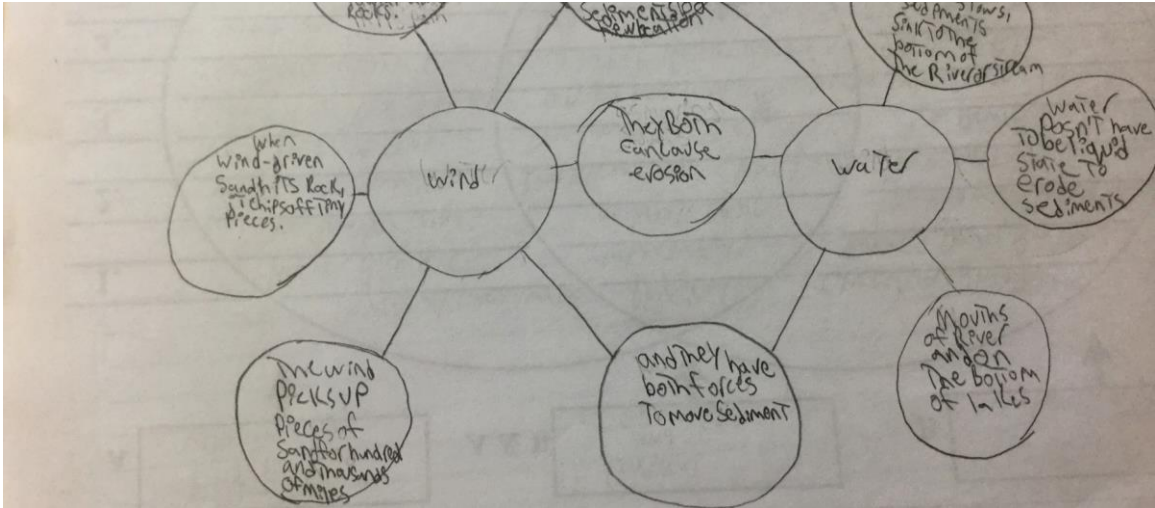 Rocks.
Sediments to a
new location
slows,
sediments
sink to the
bottom of
the River or stream
when
wind-driven
Sand hiTS Rock,
i chips off Tiny
Pieces.
wind
They Both
can cause
erosion
water
water
Dosn't have
To be liquid
state To
erode
sediments
The wind
Picks up
Pieces of
Sand for hundred
and thousands
of miles
and They have
both forces
To move Sediment
Mouths
of River
and on
The Bottom
of lakes